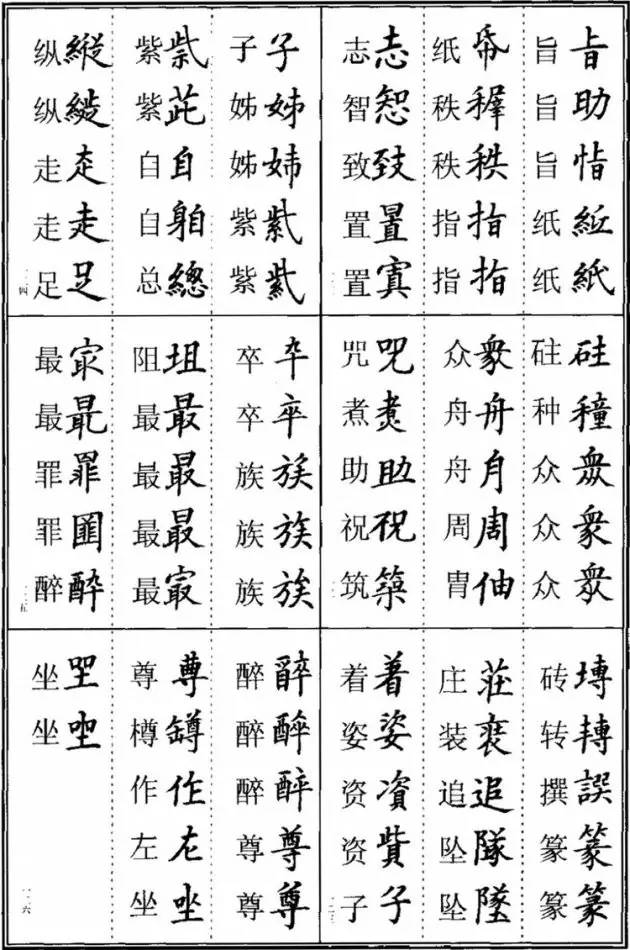 旨 㫖
旨 助
旨 恉
纸 紙
纸 紙
纸 帋
秩 稺
秩 秩
指 指
指 指
志 志
智 恕
致 致
置 置
置 寘
砫 硅
种 種
众 眾
众 衆
众 衆
众 衆
舟 舟
舟 月
周 周
胄 伷
咒 咒
煮 煮
助 助
祝 祝
筑 築
砖 塼
转 轉
撰 譔
篆 篆
篆 篆
庄 莊
装 裝
追 追
坠 隊
坠 墜
着 着
姿 姿
资 資
资 貲
子 子
子 子
姊 姊
姊 姉
紫 紫
紫 紫
紫 紫
紫 茈
自 自
自 躳
总 總
纵 縱
纵 縱
走 走
走 走
足 足
卒 卆
卒 卒
族 族
族 族
族 族
阻 岨
最 最
最 最
最 最
最 㝡
最 㝡
最 最
罪 罪
罪 圍
醉 酔
醉 醉
醉 醉
醉 醉
尊 尊
尊 尊
尊 尊
樽 罇
作 作
左 左
坐 坐
坐 坐
坐 坐